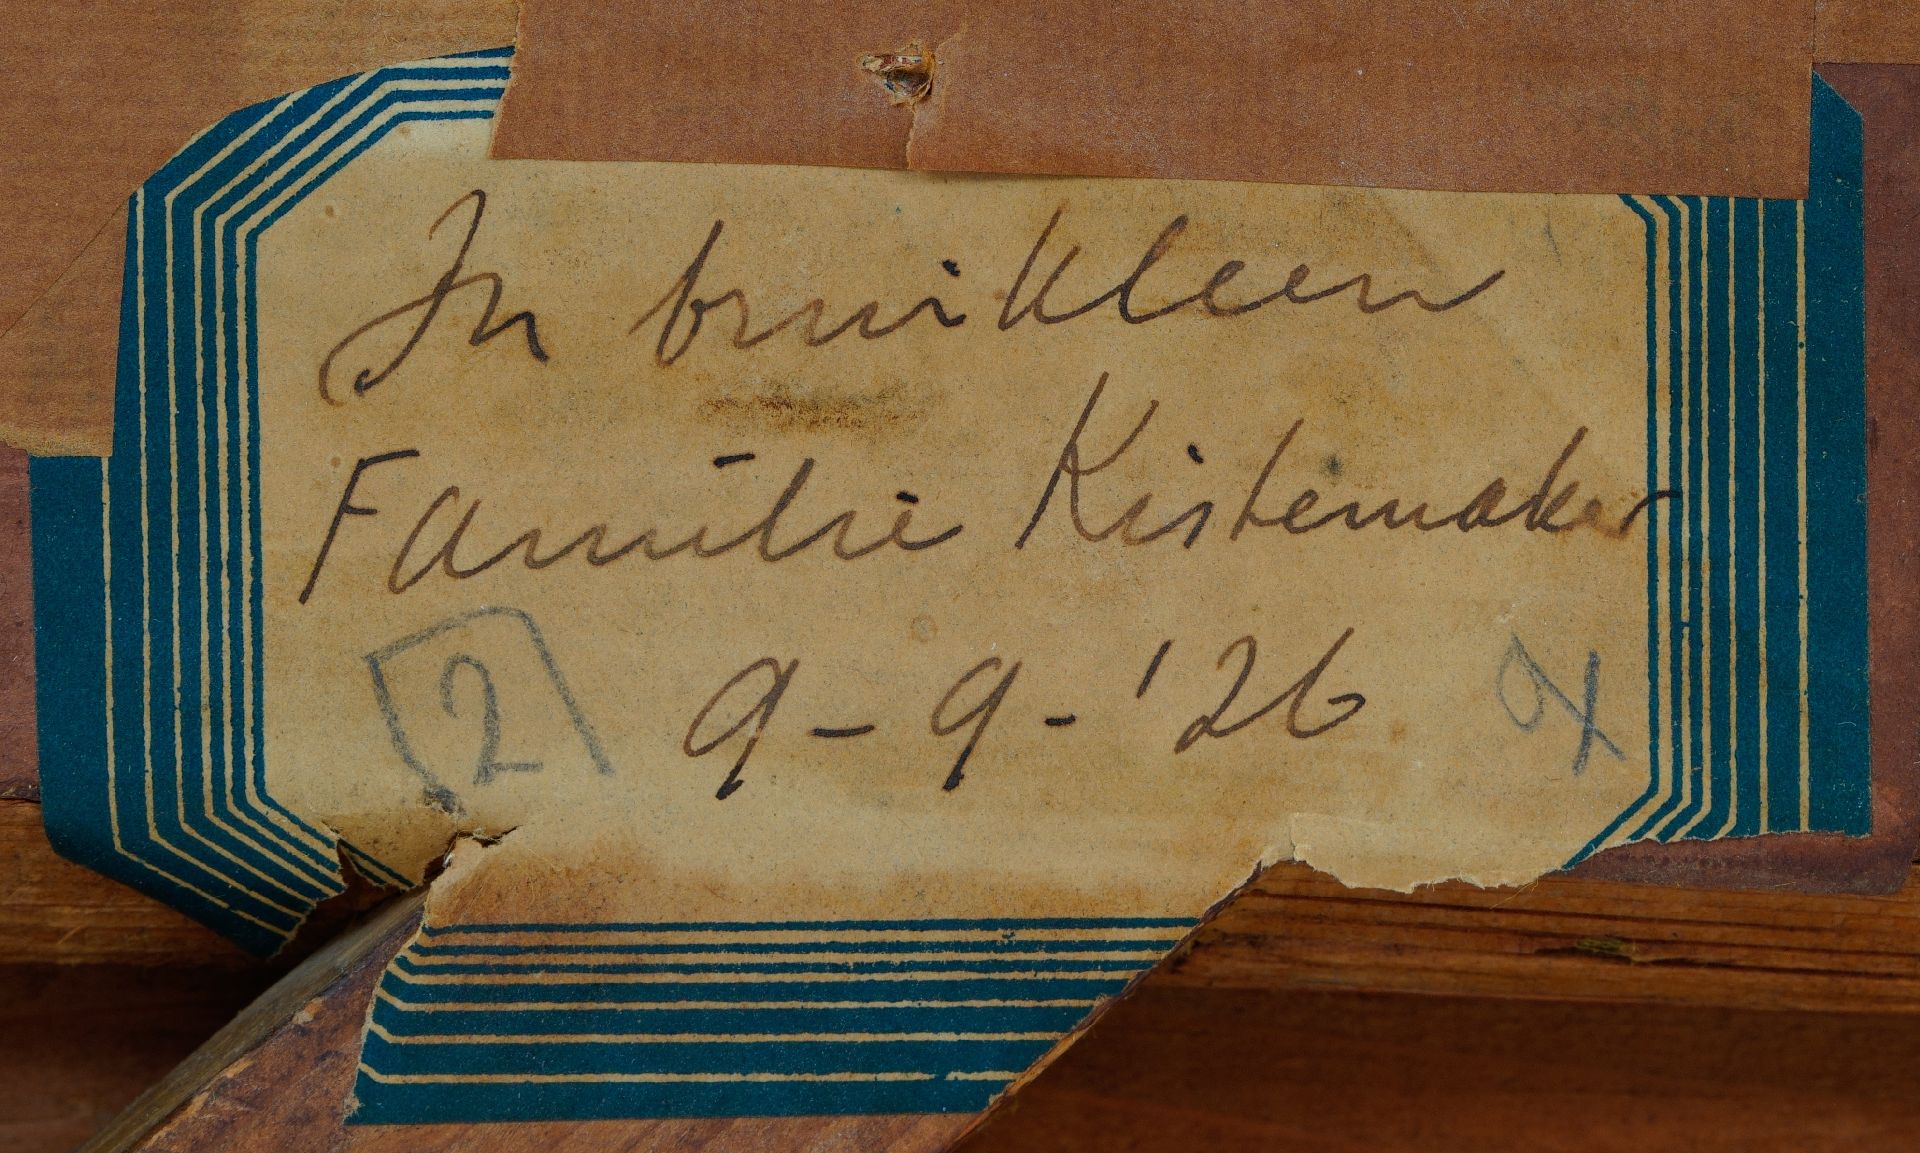 In bruikleen
Familie Kistemaker
2 9-9-'26